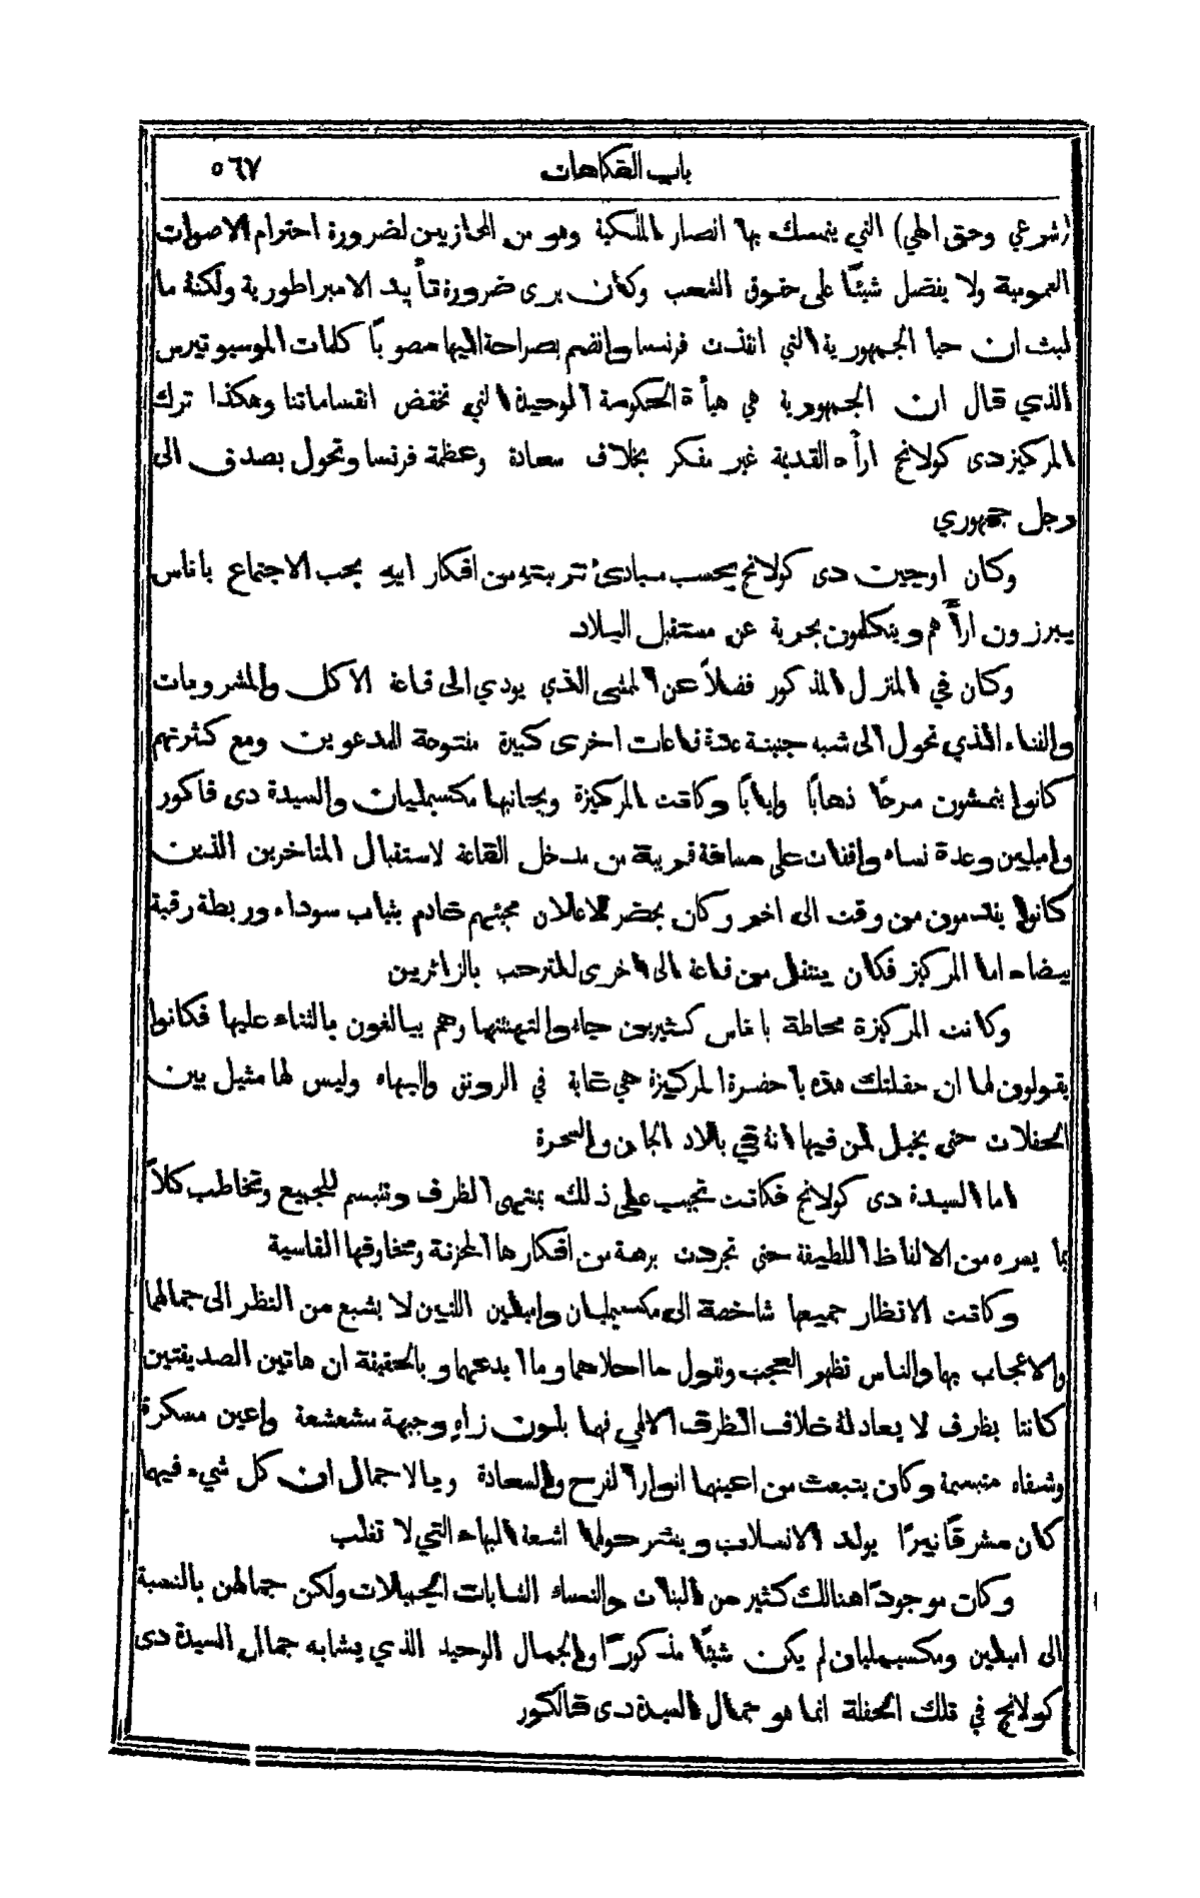 باب الفكاهات ٥٦٧
(شرعي وحق الهي) التي يتمسك بها انصار الملكية وهو من المحازبين لضرورة احترام الاصوات
العمومية ولا يفضل شيئًا على حقوق الشعب وكان يرى ضرورة تأييد الامبراطورية ولكنهُ ما
لبث ان حيا الجمهورية التي انقذت فرنسا وانضم بصراحة اليها مصوبًا كلمات الموسيو تيرس
الذي قال ان الجمهورية هي هيأة الحكومة الوحيدة التي تخفض انقساماتنا وهكذا ترك
المركيز دى كولانج ارآه القديمة غير مفكر بخلاف سعادة وعظمة فرنسا وتحول بصدق الى
رجل جمهوري
وكان اوجين دى كولانج بحسب مبادئ تربيتهِ من افكار ابيهِ يحب الاجتماع باناس
يبرزون ارآءهم ويتكلمون بحرية عن مستقبل البلاد
وكان في المنزل المذكور فضلاً عن الممشى الذي يودي الى قاعة الاكل والمشروبات
والفناء الذي تحول الى شبه جنينة عدة قاعات اخرى كبيرة مفتوحة للمدعوين ومع كثرتهم
كانوا يتمشون مرحًا ذهابًا وايابًا وكانت المركيزة وبجانبها مكسيمليان والسيدة دى فاكور
واميلين وعدة نساء واقفات على مسافة قريبة من مدخل القاعة لاستقبال المتاخرين الذين
كانوا يقدمون من وقت الى اخر وكان يحضر لاعلان مجيئهم خادم بثياب سوداء وربطة رقبة
بيضاء اما المركيز فكان ينتقل من قاعة الى اخرى للترحب بالزائرين
وكانت المركيزة محاطة باناس كثيرين جاءوا لتهنئتها وهم يبالغون بالثناء عليها فكانوا
يقولون لها ان حفلتك هذه يا حضرة المركيزة هي غاية في الرونق والبهاء وليس لها مثيل بين
الحفلات حتى يخيل لمن فيها انهُ في بلاد الجان والسحرة
اما السيدة دى كولانج فكانت تجيب على ذلك بمنتهى الظرف وتبتسم للجميع وتخاطب كلاً
بما يسره من الالفاظ اللطيفة حتى تجردت برهة من افكارها المحزنة ومخاوفها القاسية
وكانت الانظار جميعها شاخصة الى مكسيمليان واميلين اللتين لا يشبع من النظر الى جمالهما
والاعجاب بها والناس تظهر التعجب وتقول ما احلاهما وما ابدعهما وبالحقيقة ان هاتين الصديقتين
كانتا بظرف لا يعادلهُ خلاف الظرف الالهي فهما بلون زاهٍ وجبهة مشعشعة واعين مسكرة
وشفاه متبسمة وكان ينبعث من اعينهما انوار الفرح والسعادة وبالاجمال ان كل شيء فيهما
كان مشرقًا نيرًا يولد الانسلاب وينشر حولها اشعة البهاء التي لا تغلب
وكان موجودًا هنالك كثير من البنات والنساء الشابات الجميلات ولكن جمالهن بالنسبة
الى اميلين ومكسيمليان لم يكن شيئًا مذكورًا والجمال الوحيد الذي يشابه جمال السيدة دى
كولانج في تلك الحفلة انما هو جمال السيدة دى فالكور